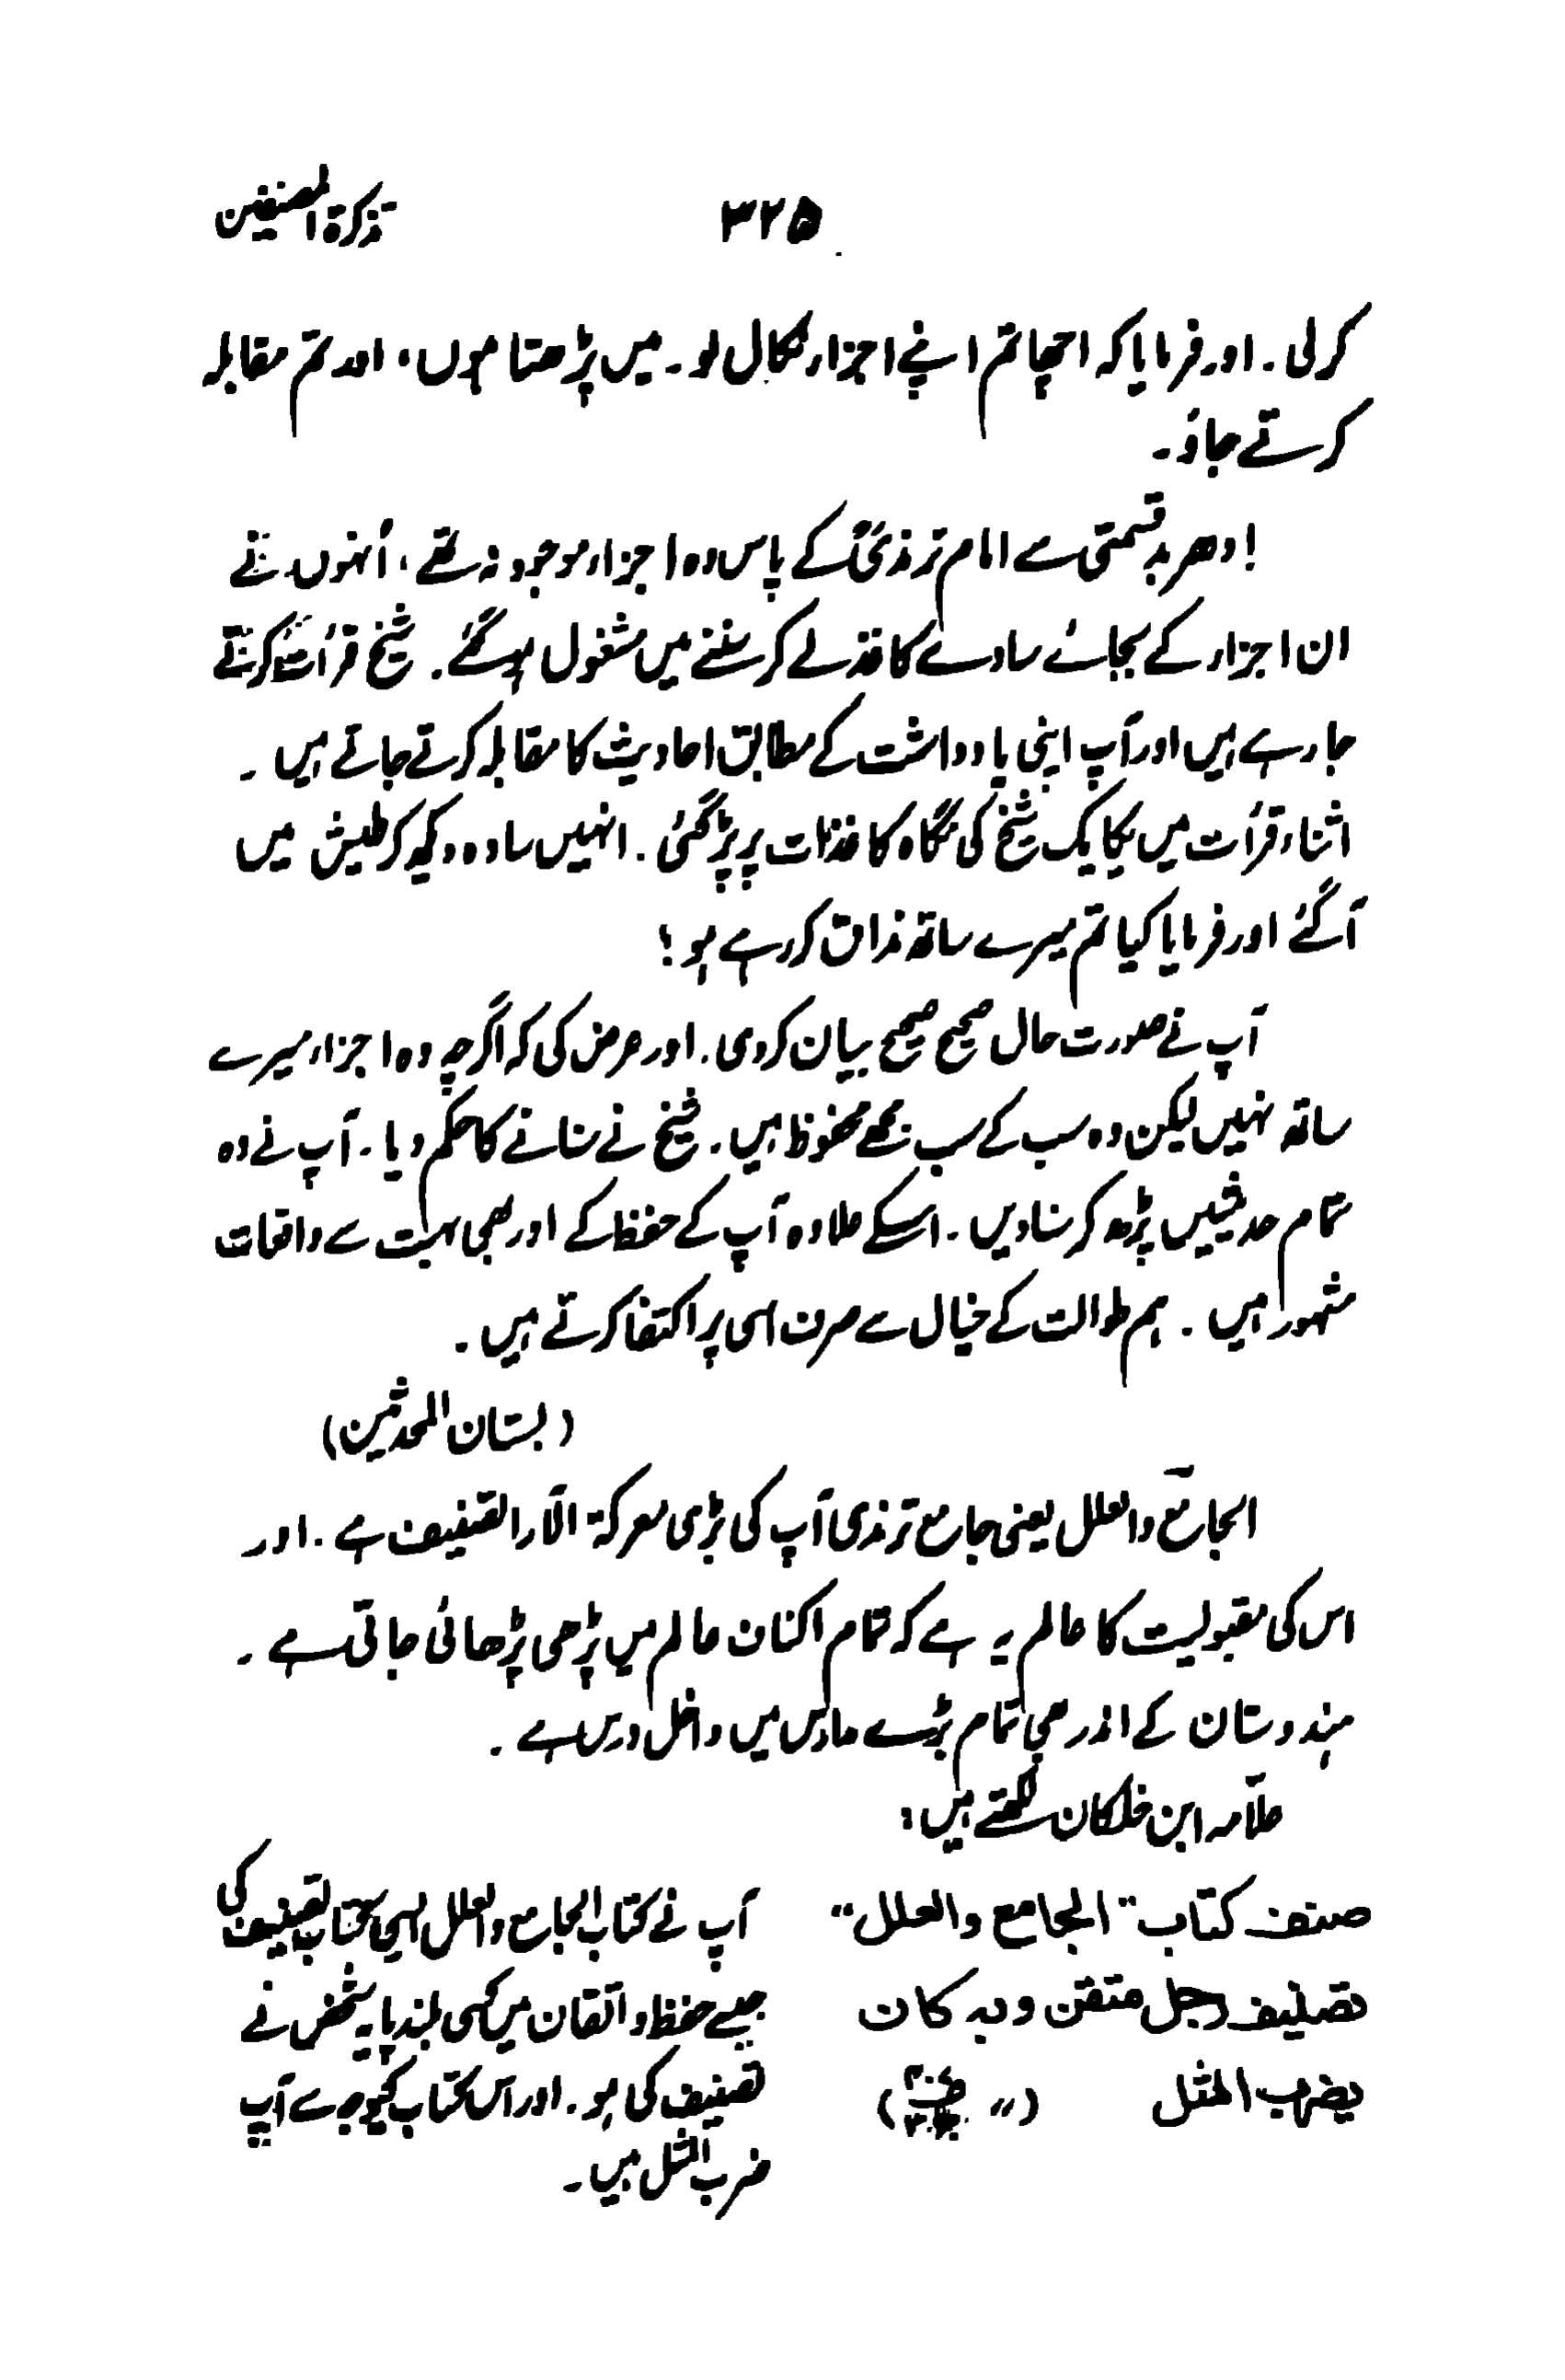 تذکرۃ المصنفین
۳۲۵
کرلی۔ اور فرمایا کہ اچھا تم اپنے اجزاء نکال لو۔ میں پڑھتا ہوں، اور تم مقابلہ
کرتے جاؤ۔
ادھر بدقسمتی سے امام ترمذیؒ کے پاس وہ اجزاء موجود نہ تھے، اُنہوں نے
ان اجزاء کے بجائے سادے کاغذ لے کر سننے میں مشغول ہو گئے۔ شیخ قرأت کرتے
جا رہے ہیں اور آپ اپنی یادداشت کے مطابق احادیث کا مقابلہ کرتے جاتے ہیں۔
اثناء قرأت میں یکایک شیخ کی نگاہ کاغذات پر پڑ گئی۔ انہیں سادہ دیکھ کر طیش میں
آگئے اور فرمایا کیا تم میرے ساتھ مذاق کر رہے ہو؟
آپ نے صورت حال صحیح صحیح بیان کر دی۔ اور عرض کی کہ اگرچہ وہ اجزاء میرے
ساتھ نہیں لیکن وہ سب کے سب مجھے محفوظ ہیں۔ شیخ نے سنانے کا حکم دیا۔ آپ نے وہ
تمام حدیثیں پڑھ کر سنا دیں۔ اسکے علاوہ آپ کے حفظ کے اور بھی بہت سے واقعات
مشہور ہیں۔ ہم طوالت کے خیال سے صرف اسی پر اکتفا کرتے ہیں۔
(بستان المحدثین)
الجامع والعلل یعنی جامع ترمذی آپ کی بڑی معرکۃ الآرا تصنیف ہے۔ اور
اس کی مقبولیت کا عالم یہ ہے کہ تمام اکناف عالم میں پڑھی پڑھائی جاتی ہے۔
ہندوستان کے اندر بھی تمام بڑے مدارس میں داخل درس ہے۔
علّامہ ابن خلکان لکھتے ہیں:
صنف کتاب "الجامع والعلل"
تصنیف رجل متقن وبہ کان
یضرب المثل
آپ نے کتاب الجامع والعلل ایسی کتاب تصنیف کی
جیسے حفظ و اتقان میں کسی بلند پایہ شخص نے
تصنیف کی ہو۔ اور اس کتاب کیوجہ سے آپ
ضرب المثل ہیں۔